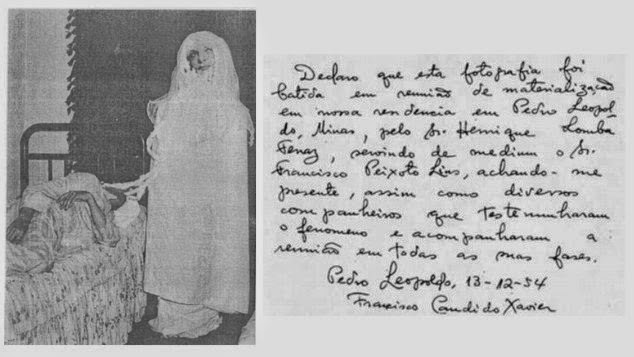 Declaro que esta fotografia foi
batida em reunião de materialização
em nossa residencia em Pedro Leopol-
do, Minas, pelo Sr. Henrique Lomba
Ferraz, servindo de medium o Sr.
Francisco Peixoto Lins, achando-me
presente, assim como diversos
companheiros que testemunharam
o fenomeno e acompanharam a
reunião em todas as suas fases.
Pedro Leopoldo, 13-12-54
Francisco Candido Xavier